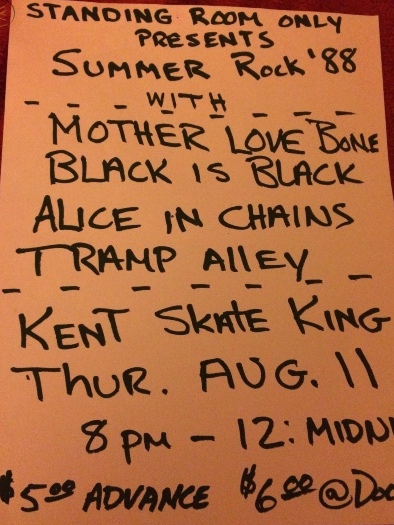 STANDING ROOM ONLY
PRESENTS
SUMMER ROCK '88
- - - WITH - - - -
MOTHER LOVE BONE
BLACK IS BLACK
ALICE IN CHAINS
TRAMP AllEY
- - - - - - - -
KENT SKATE KING
THUR. AUG. 11
8 PM - 12: MIDN
$5.00 ADVANCE $6.00 @ Doo